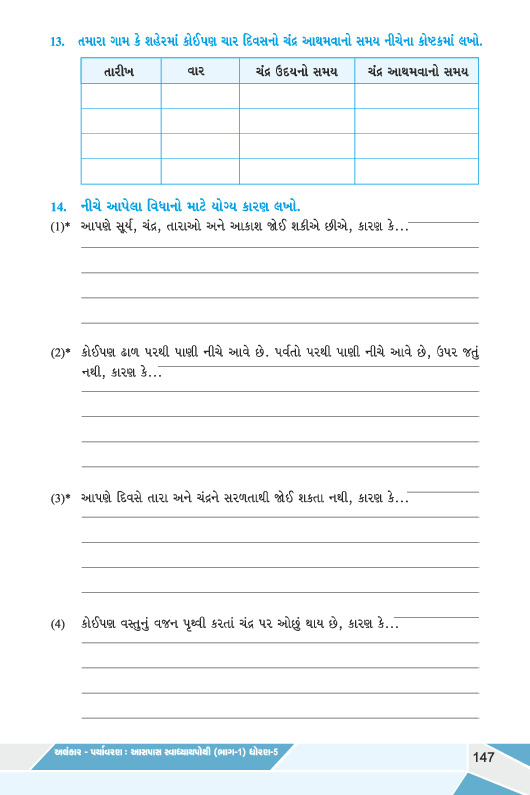 13. તમારા ગામ કે શહેરમાં કોઈપણ ચાર દિવસનો ચંદ્ર આથમવાનો સમય નીચેના કોષ્ટકમાં લખો.
તારીખ વાર ચંદ્ર ઉદયનો સમય ચંદ્ર આથમવાનો સમય
14. નીચે આપેલા વિધાનો માટે યોગ્ય કારણ લખો.
(1)* આપણે સૂર્ય, ચંદ્ર, તારાઓ અને આકાશ જોઈ શકીએ છીએ, કારણ કે...
(2)* કોઈપણ ઢાળ પરથી પાણી નીચે આવે છે. પર્વતો પરથી પાણી નીચે આવે છે, ઉપર જતું
નથી, કારણ કે...
(3)* આપણે દિવસે તારા અને ચંદ્રને સરળતાથી જોઈ શકતા નથી, કારણ કે...
(4) કોઈપણ વસ્તુનું વજન પૃથ્વી કરતાં ચંદ્ર પર ઓછું થાય છે, કારણ કે...
અલંકાર - પર્યાવરણ : આસપાસ સ્વાધ્યાયપોથી (ભાગ-1) ધોરણ-5
147